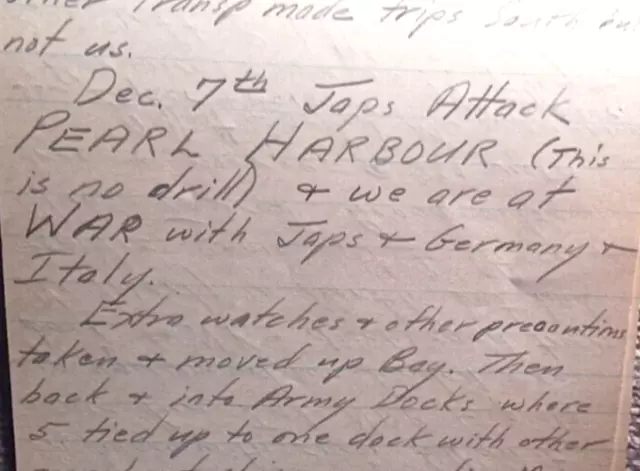 other Transp made trips South but
not us.
Dec. 7th Japs Attack
PEARL HARBOUR (This
is no drill) + we are at
WAR with Japs + Germany +
Italy.
Extra watches + other precautions
taken + moved up Bay. Then
back + into Army Docks where
5 tied up to one dock with other